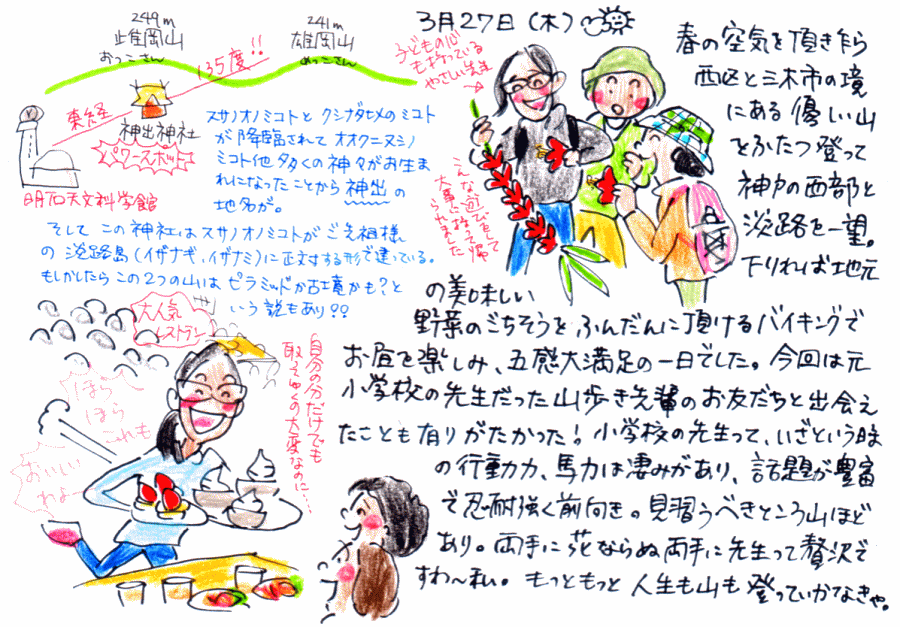 3月27日(木)
249m
雌岡山
おっこさん
241m
雄岡山
めっこさん
135度!!
東経
神出神社
パワースポット
明石天文科学館
スサノオノミコトとクシナダヒメのミコト
が降臨されて オオクニヌシノ
ミコト他 多くの神々がお生ま
れになったことから神出の
地名が。
そして この神社はスサノオノミコトがご先祖様
の淡路島(イザナギ、イザナミ)に正対する形で建っている。
もしかしたら この2つの山は ピラミッドか古墳かも?と
いう説もあり??
子どもの心
も持っている
やさしい先生
こんな遊びをして
大事に持って帰
られました
春の空気を頂き乍ら
西区と三木市の境
にある 優しい山
をふたつ登って
神戸の西部と
淡路を一望。
下りれば地元
の美味しい
野菜のごちそうを ふんだんに頂けるバイキングで
お昼を楽しみ、五感大満足の一日でした。今回は元
小学校の先生だった山歩き先輩のお友だちと出会え
たことも有りがたかった! 小学校の先生って、いざという時
の行動力、馬力は凄みがあり、話題が豊富
で忍耐強く前向きの見習うべきところ山ほど
あり。両手に花ならぬ両手に先生って贅沢で
すわ〜私。もっともっと人生も山も登っていかなきゃ。
大人気
レストラン
自分の分だけでも
取るの大変なのに…
ほら
ほら
これも
おいしい
わよー